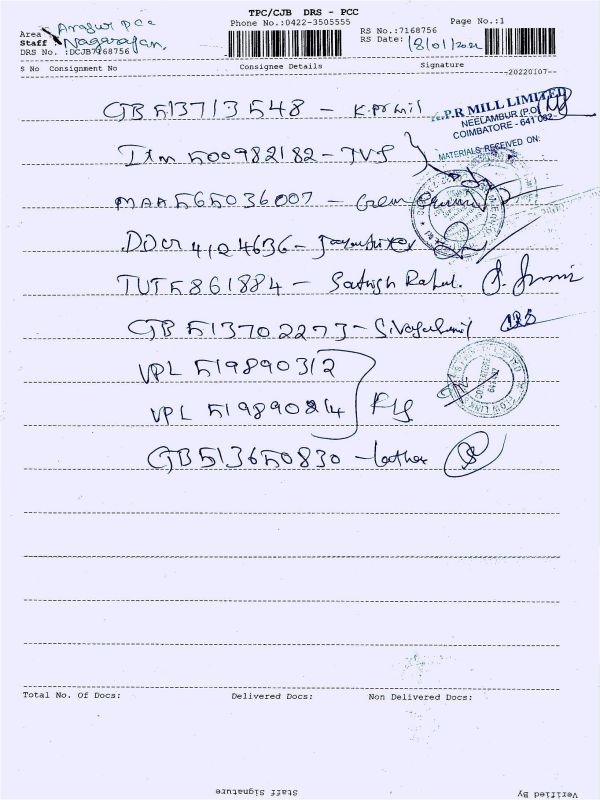 TPC/CJB DRS - PCC
Phone No.:0422-3505555
Page No.:1
Area Arasur PCC
Staff Nagarajan,
DRS No. :DCJB7168756
RS No.:7168756
RS Date: 18/01/2022
S No Consignment No Consignee Details Signature
20220107
CJB 513713548 - K.P.R mil
K.P.R MILL LIMITED
NEELAMBUR (P.O)
COIMBATORE - 641 062
MATERIALS RECEIVED ON:
Itm 500982182 - TVS
MAA 565036007 - Gem
DDCr 4124636 -
TUT 5861884 - Sathish Rahul.
CJB 513702273 -
VPL 519890312
VPL 519890214
CJB 513650830 -
Total No. Of Docs: Delivered Docs: Non Delivered Docs:
Staff Signature Verified By